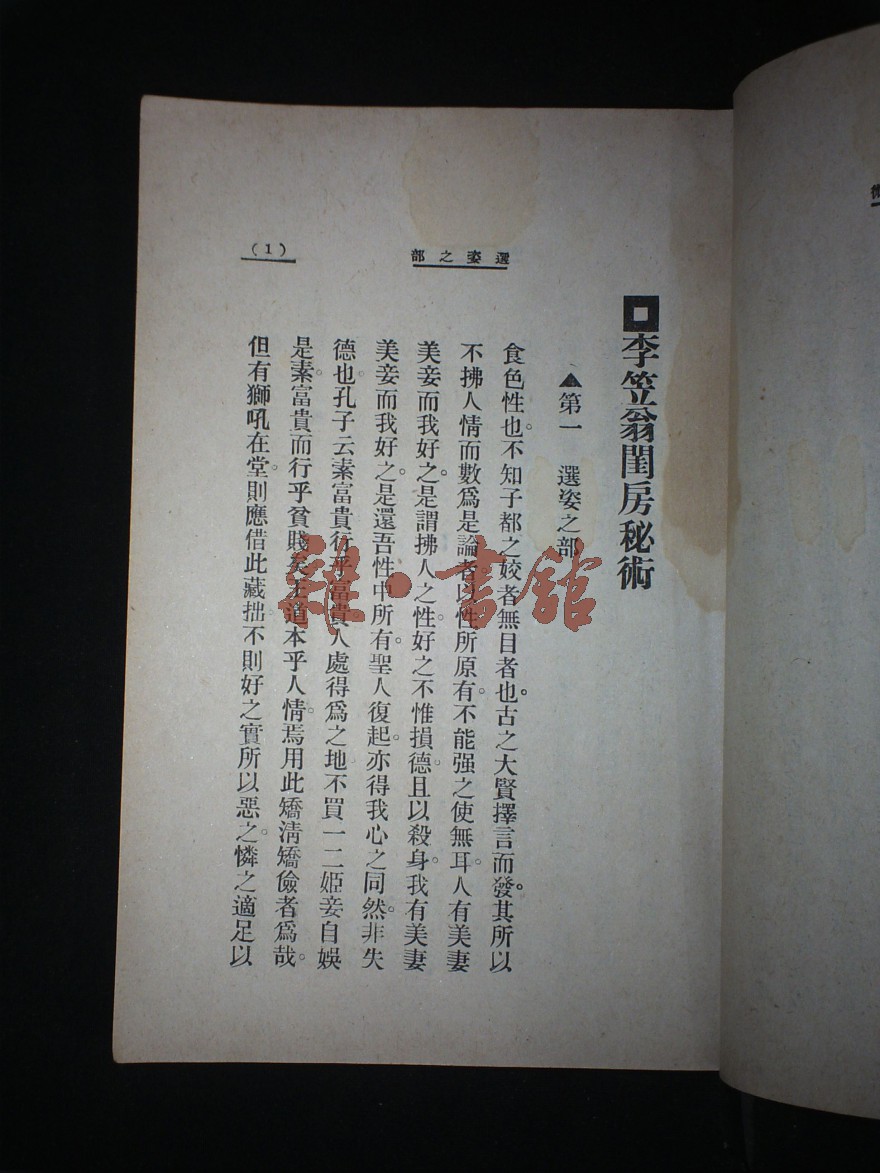 李笠翁閨房秘術
▲第一　選姿之部
食色性也。不知子都之姣者無目者也。古之大賢擇言而發。其所以
不拂人情而數爲是論者。以性所原有。不能强之使無耳。人有美妻
美妾而我好之。是謂拂人之性。好之不惟損德。且以殺身。我有美妻
美妾而我好之。是還吾性中所有。聖人復起。亦得我心之同然。非失
德也。孔子云素富貴行乎富貴人處得爲之地不買一二姬妾自娛
是素富貴而行乎貧賤矣王道本乎人情。焉用此矯淸矯儉者爲哉。
但有獅吼在堂。則應借此藏拙不則好之實所以惡之。憐之適足以
選姿之部
(1)
雜·書館
術